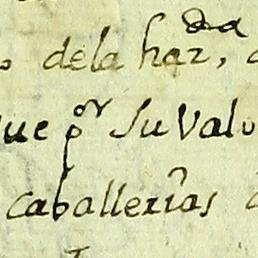 dela haz,
que por Su Valo
caballerias